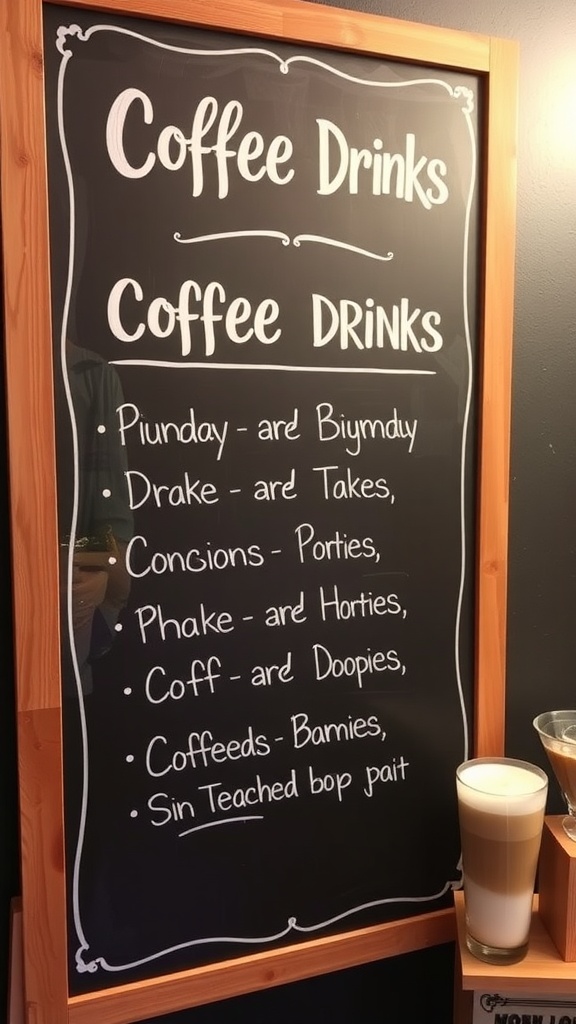 Coffee Drinks
Coffee DRiNKS
• Piunday - are Biymduy
• Drake - are Takes,
• Concions - Porties,
• Phake - are Horties,
• Coff - are Doopies,
• Coffeeds - Bamies,
• Sin Teached bop pait